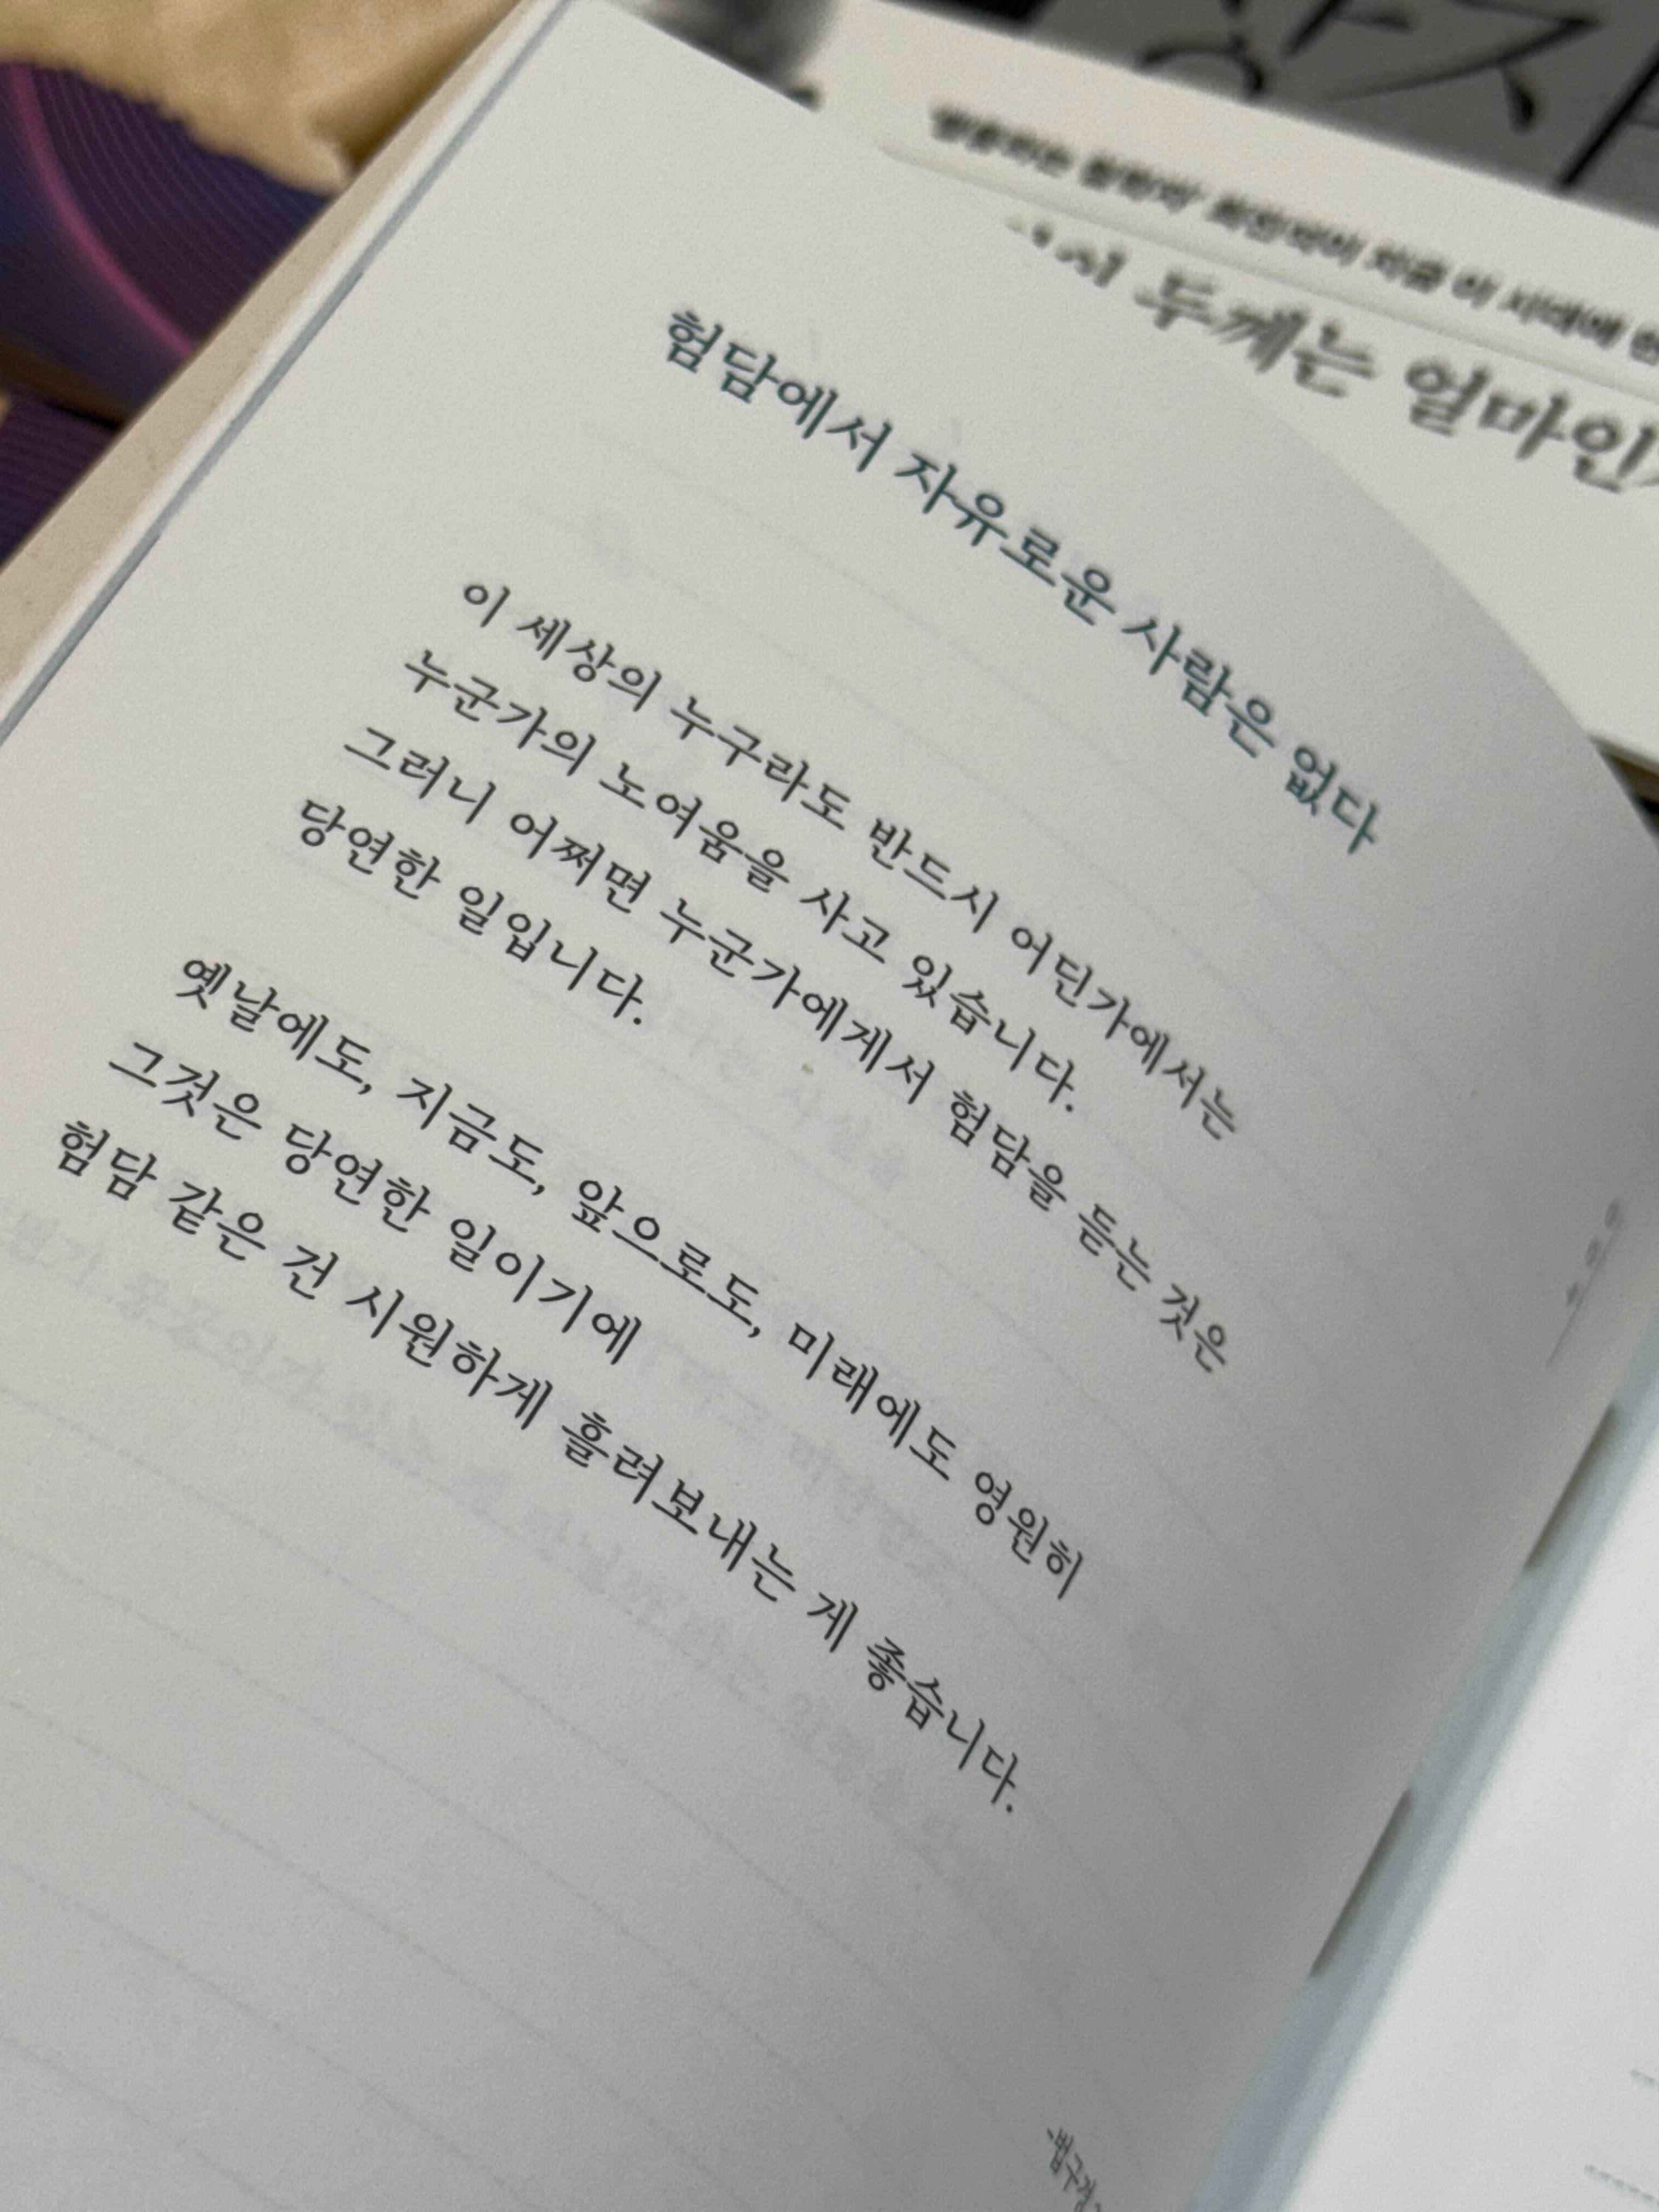 두께는 얼마인
험담에서 자유로운 사람은 없다
이 세상의 누구라도 반드시 어딘가에서는
누군가의 노여움을 사고 있습니다.
그러니 어쩌면 누군가에게서 험담을 듣는 것은
당연한 일입니다.
옛날에도, 지금도, 앞으로도, 미래에도 영원히
그것은 당연한 일이기에
험담 같은 건 시원하게 흘려보내는 게 좋습니다.
-법구경